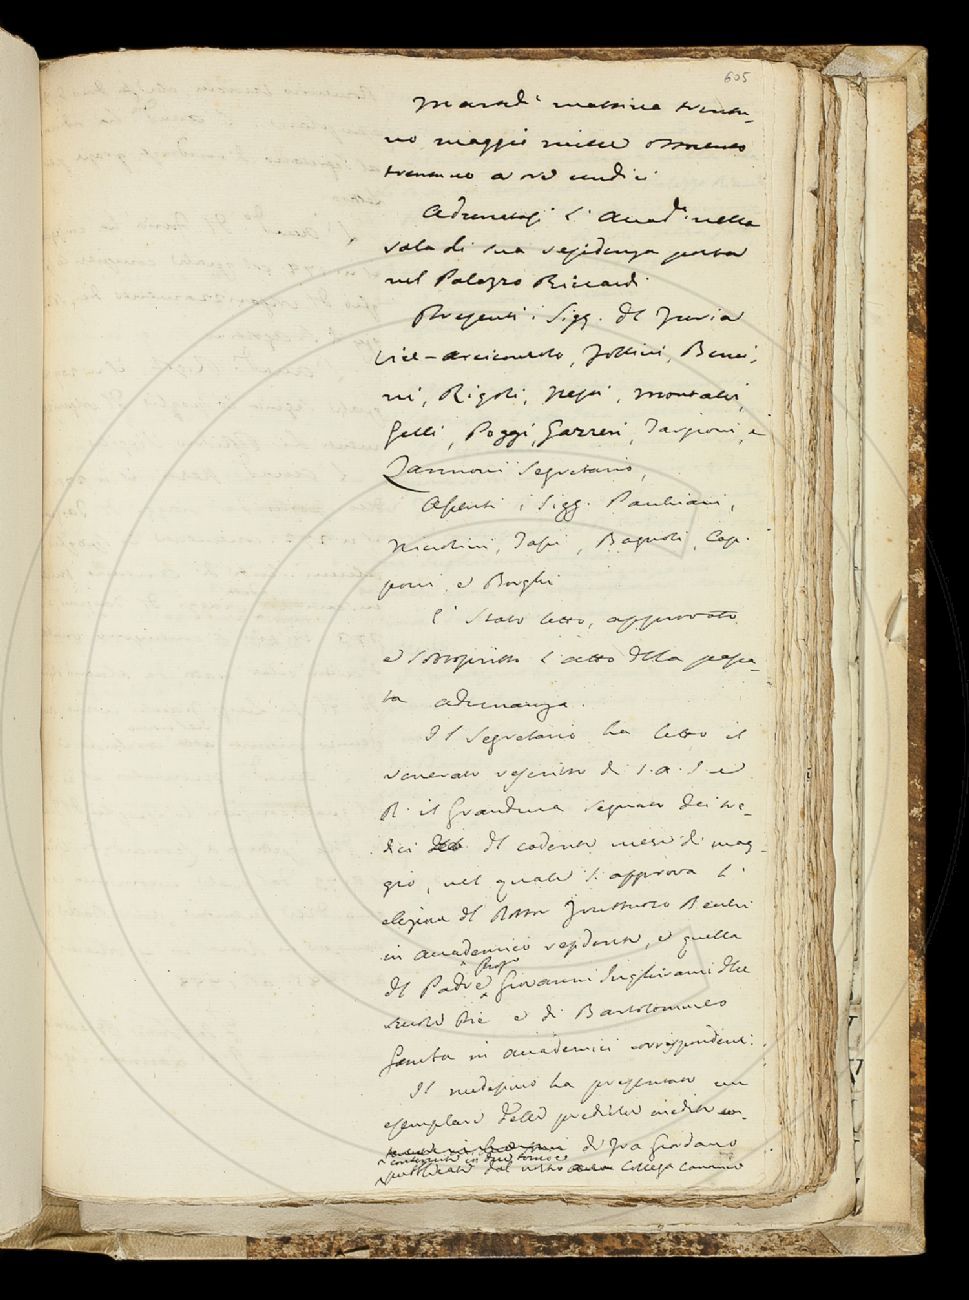 605
Martedì mattina trentu-
no maggio mille ottocento
trentuno a ore undici
Adunatasi l'Accad.a nella
sala di sua residenza posta
nel Palazzo Riccardi
Presenti i Sigg. del Furia
Vice-Arciconsolo, Follini, Benci,
ni, Rigoli, Nesti, Montalvi,
Gelli, Poggi, Gazzeri, Targioni, e
Zannoni Segretario,
Assenti i Sigg. Panchiani,
Niccolini, Bagnoli, Cap-
poni, e Borghi
E' stato letto, approvato
e sottoscritto l'atto della passa-
ta adunanza.
Il Segretario ha letto il
venerato rescritto di S. A. I. e
R. il Granduca segnato dei tre-
dici del cadente mese di mag-
gio, nel quale s'approva l'
elezione del Dottor Francesco
in accademico residente, e quella
del Padre Giovanni Inghirami delle
Scuole Pie e di Bartolommeo
Gamba in accademici corrispondenti.
Il medesimo ha presentato un
esemplare delle prediche inedite
di Fra Giordano
contenuto in due tomi
pubblicate dal nostro Collega Canonico